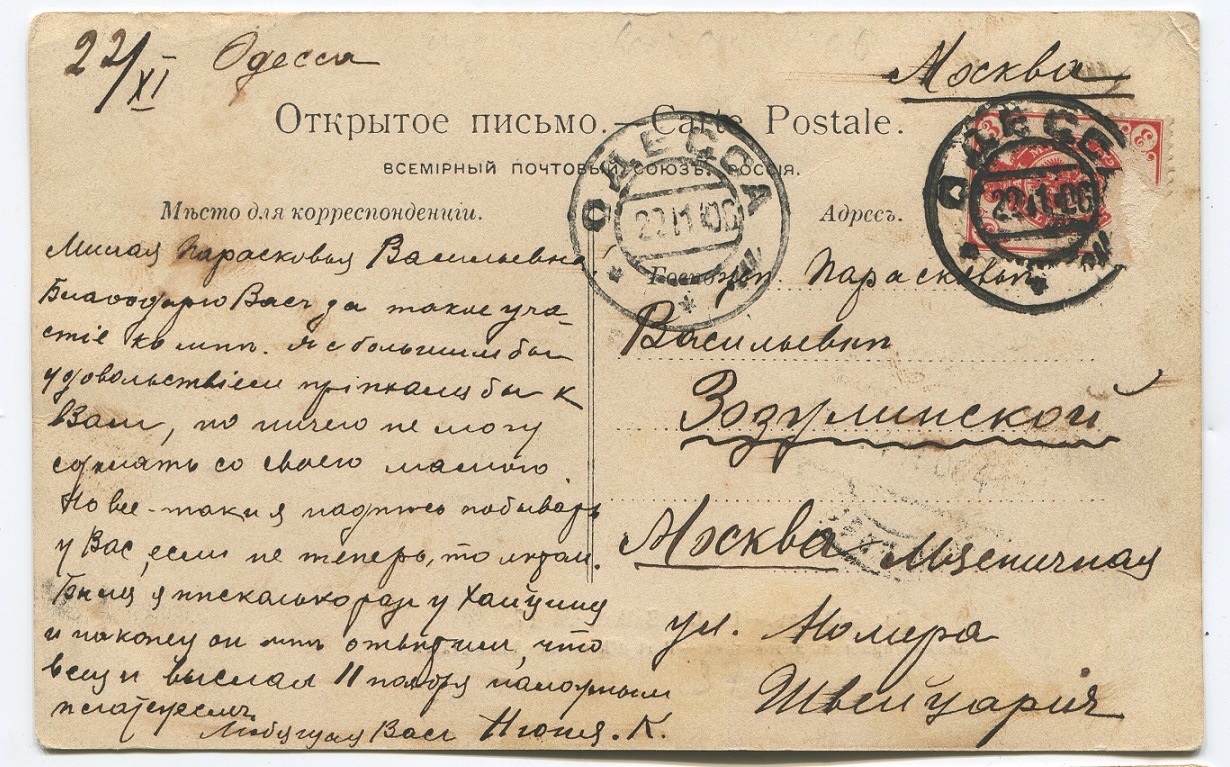 22/XI Одесса
Москва
Открытое письмо. — Carte Postale.
ВСЕМІРНЫЙ ПОЧТОВЫЙ СОЮЗЪ. РОССІЯ.
Мѣсто для корреспонденціи.
Адресъ.
ОДЕССА
22 11 06
ОДЕССА
22 11 06
Милая Парасковья Васильевна,
Благодарю Васъ за такое уча-
стіе ко мнѣ. Я с большим бы
удовольствіем пріѣхали бы к
Вам, но ничего не могу
сдѣлать со своею мамою
Но все-таки я надѣюсь побывать
у Вас, если не теперь, то лѣтом.
Была я нѣсколько раз у
и наконец он мнѣ отвѣтил, что
вещи выслал 11 ноября наложным
платежемъ.
Любящая Васъ Нюня. К.
Госпожѣ Парасковьѣ
Васильевнѣ
Зозулинской
Москва Мясничная
ул. Номера
Швейцарія